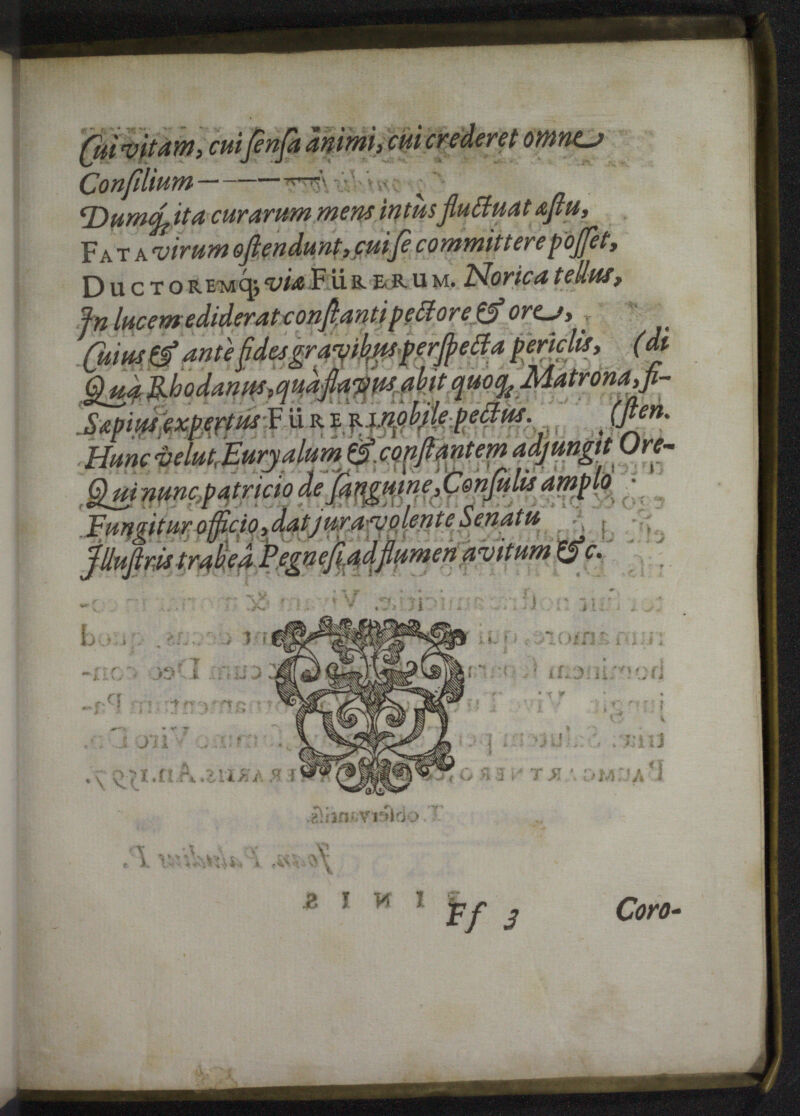 Cui vitam, cui ſenſa animi, cui crederet omne
Conſilium — — — —
Dumq́; ita curarum mens intùs fluctuat æſtu,
FATA virum oſtendunt, cui ſe committere poſſet,
DUCTOREMq́; viæ FüRERUM. Norica tellus,
In lucem ediderat conſtanti pectore & ore,
Cuius & antè fides gravibus perſpecta periclis, (di
Quà Rhodanus, quà flavus abit quoq; Matrona, fi-
Sæpius expertus FüRERI nobile pectus. (ſten.
Hunc velut Euryalum & conſtantem adjungit Ore-
Qui nunc patricio de ſanguine, Conſulis amplo
Fungitur officio, dat jura volente Senatu
Illuſtris trabeâ Pegneſi ad flumen avitum &c.
Ff 3
Coro-